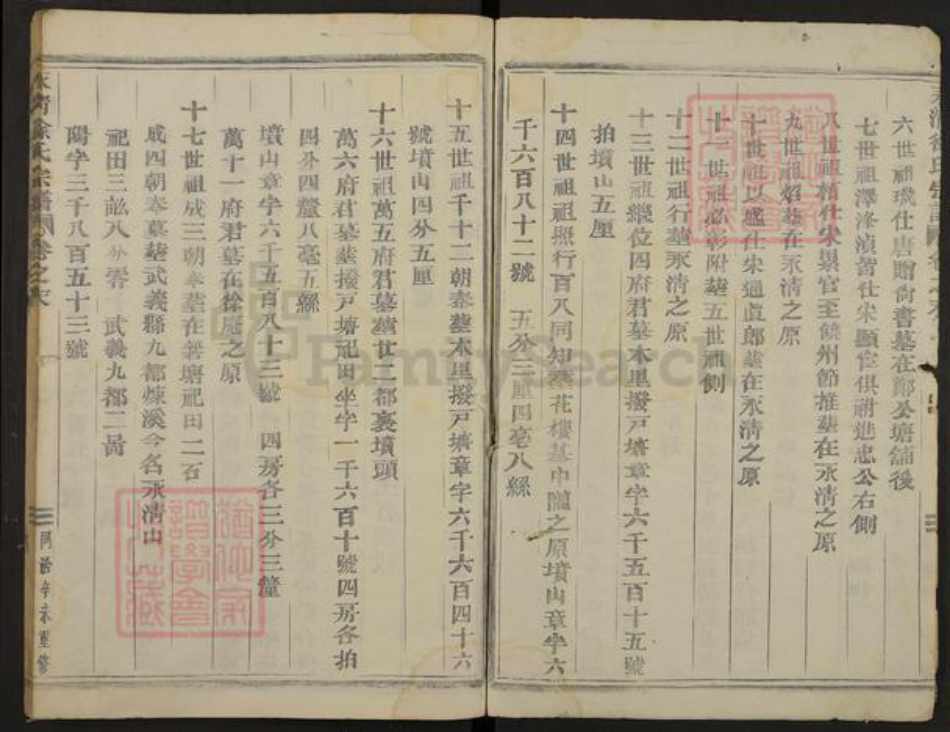 六世祖 仕唐贈尚書墓在鄭公塘舖後
七世祖澤 湞皆仕宋顯官俱祔進忠公右側
八世祖楨仕宋累官至饒州節推葬在永清之原
九世祖炤葬在永清之原
十世祖以盛仕宋通直郎葬在永清之原
十一世祖必彰附葬五世祖側
十二世祖行 葬永清之原
十三世祖縱位四府君墓本里撥戸塘章字六千五百十五號
拍墳山五厘
十四世祖祖照行百八同知墓花樓基中隴之原墳山章字六
千六百八十二號 五分二厘四毫八絲
十五世祖千十二朝奉葬本里撥戸塘章字六千六百四十六
號墳山四分五厘
十六世祖萬五府君墓葬廿三都裹墳頭
萬六府君墓葬撥戸塘祀田坐字一千六百十號四房各拍
四分四釐八毫五絲
墳山章字六千五百八十三號 四房各三分三釐
萬十一府君墓在徐 之原
十七世祖成三朝奉葬在箬塘祀田二石
成四朝奉墓葬武義縣九都 溪今名永清山
祀田三畝八分零 武義九都二啚
陽字三千八百五十三號
永清徐氏宗譜 卷之末
同治辛未重修